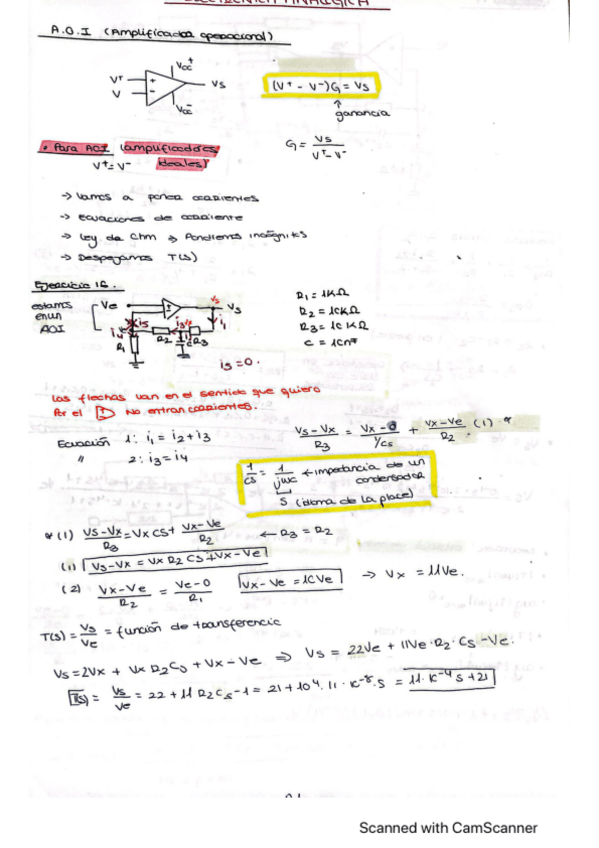 ELECTRÓNICA ANALÓGICA
A.O.I (Amplificador operacional)
Vcc+
V+
V-
+
-
Vs
Vcc-
(V+ - V-)G = Vs
ganancia
G = Vs / V+ - V-
• Para AOI (amplificadores ideales)
V+ = V-
→ Vamos a poner corrientes
→ Ecuaciones de corriente
→ Ley de Ohm → Pondremos incógnitas
→ Despejamos T(s)
Ejercicio 16.
estamos en un AOI
Ve
Vs
i5
i4
i3
Vx
i1
R1
R2
C
R3
i5 = 0.
R1 = 1KΩ
R2 = 10KΩ
R3 = 10KΩ
C = 10nF
Las flechas van en el sentido que quiero
Por el ▷ No entran corrientes.
Ecuación 1: i1 = i2 + i3
" 2: i3 = i4
Vs-Vx / R3 = Vx-0 / 1/cs + Vx-Ve / R2 (1) *
1/cs = 1/jwc ← impedancia de un condensador
S (idioma de la place)
* (1) Vs-Vx / R3 = Vx CS + Vx-Ve / R2 ← R3 = R2
(1) Vs-Vx = Vx R2 CS + Vx-Ve
(2) Vx-Ve / R2 = Ve-0 / R1 Vx-Ve = 10Ve → Vx = 11Ve.
T(s) = Vs/Ve = función de transferencia
Vs = 2Vx + Vx R2 Cs + Vx - Ve ⇒ Vs = 22Ve + 11Ve·R2·Cs - Ve.
T(s) = Vs/Ve = 22 + 11 R2 Cs - 1 = 21 + 10^4·11·10^-8·s = 11·10^-4 s + 21
Scanned with CamScanner